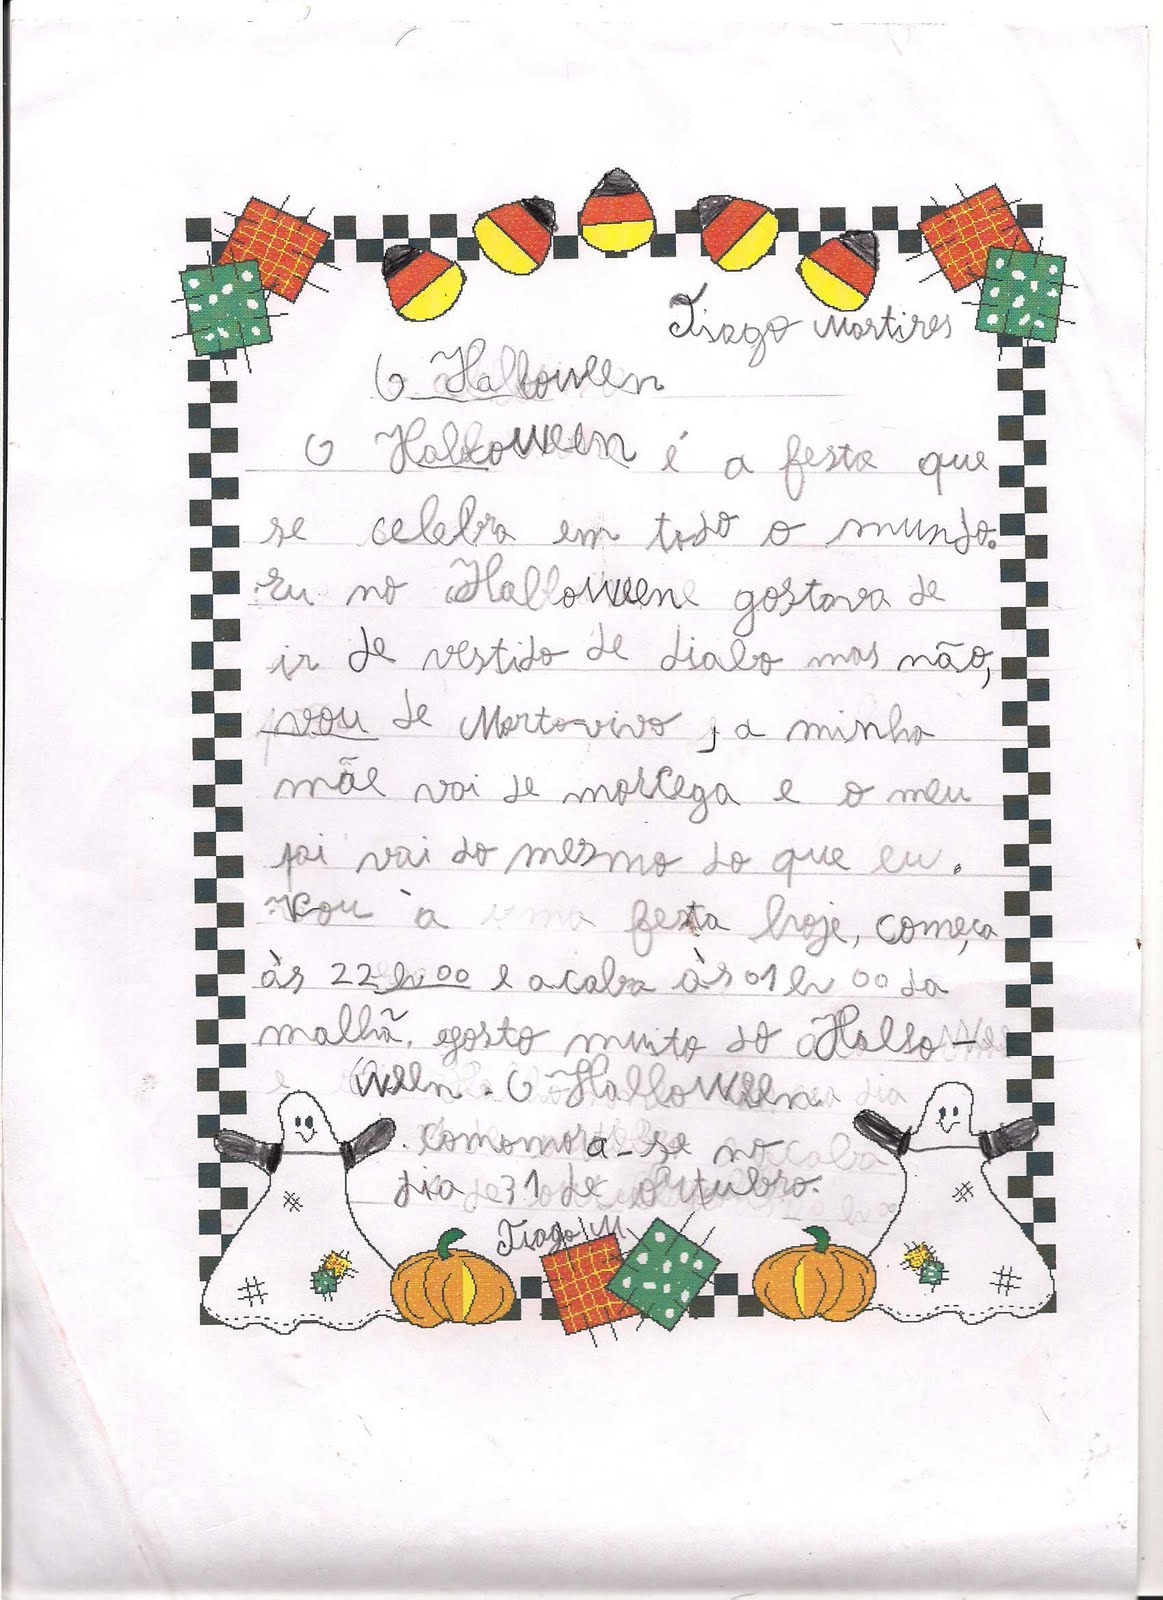 Tiago Martires
O Halloween
O Halloween é a festa que
se celebra em todo o mundo.
Eu no Halloween gostava de
ir de vestido de diabo mas não,
vou de Morto-vivo, a minha
mãe vai de morcega e o meu
pai vai do mesmo do que eu.
Vou à festa hoje, começa
às 22h00 e acaba às 01h00 da
malhã, gosto muito do Hallo-
ween. O Halloween
comomora-se no
dia 31 de outubro.
Tiago M